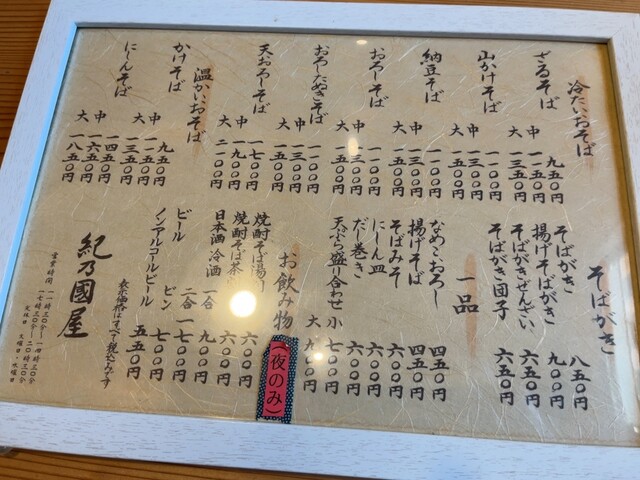 冷たいおそば
ざるそば
九五〇円
中 一一五〇円
大 一三五〇円
山かけそば
一一〇〇円
中 一三〇〇円
大 一五〇〇円
納豆そば
一一〇〇円
中 一三〇〇円
大 一五〇〇円
おろしそば
一一〇〇円
中 一三〇〇円
大 一五〇〇円
おろしたぬきそば
一一〇〇円
中 一三〇〇円
大 一五〇〇円
天おろしそば
一七〇〇円
中 一九〇〇円
大 二一〇〇円
温かいおそば
かけそば
九五〇円
中 一一五〇円
大 一三五〇円
にしんそば
一四五〇円
中 一六五〇円
大 一八五〇円
そばがき
そばがき 八五〇円
揚げそばがき 九〇〇円
そばがきぜんざい 六五〇円
そばがき団子 六五〇円
一品
なめこおろし 四五〇円
揚げそば 四五〇円
そばみそ 六〇〇円
にしん皿 六〇〇円
だし巻き 六〇〇円
天ぷら盛り合わせ 小 七〇〇円
大 九〇〇円
お飲み物
(夜のみ)
焼酎そば湯割 六〇〇円
焼酎そば茶 六〇〇円
日本酒 冷酒 一合 九〇〇円
二合 一七〇〇円
ビール ビン 七〇〇円
ノンアルコールビール 五五〇円
表示価格はすべて税込みです
紀乃國屋
営業時間 一一時三〇分―一四時三〇分
一七時三〇分―二〇時三〇分
定休日 火曜日・水曜日